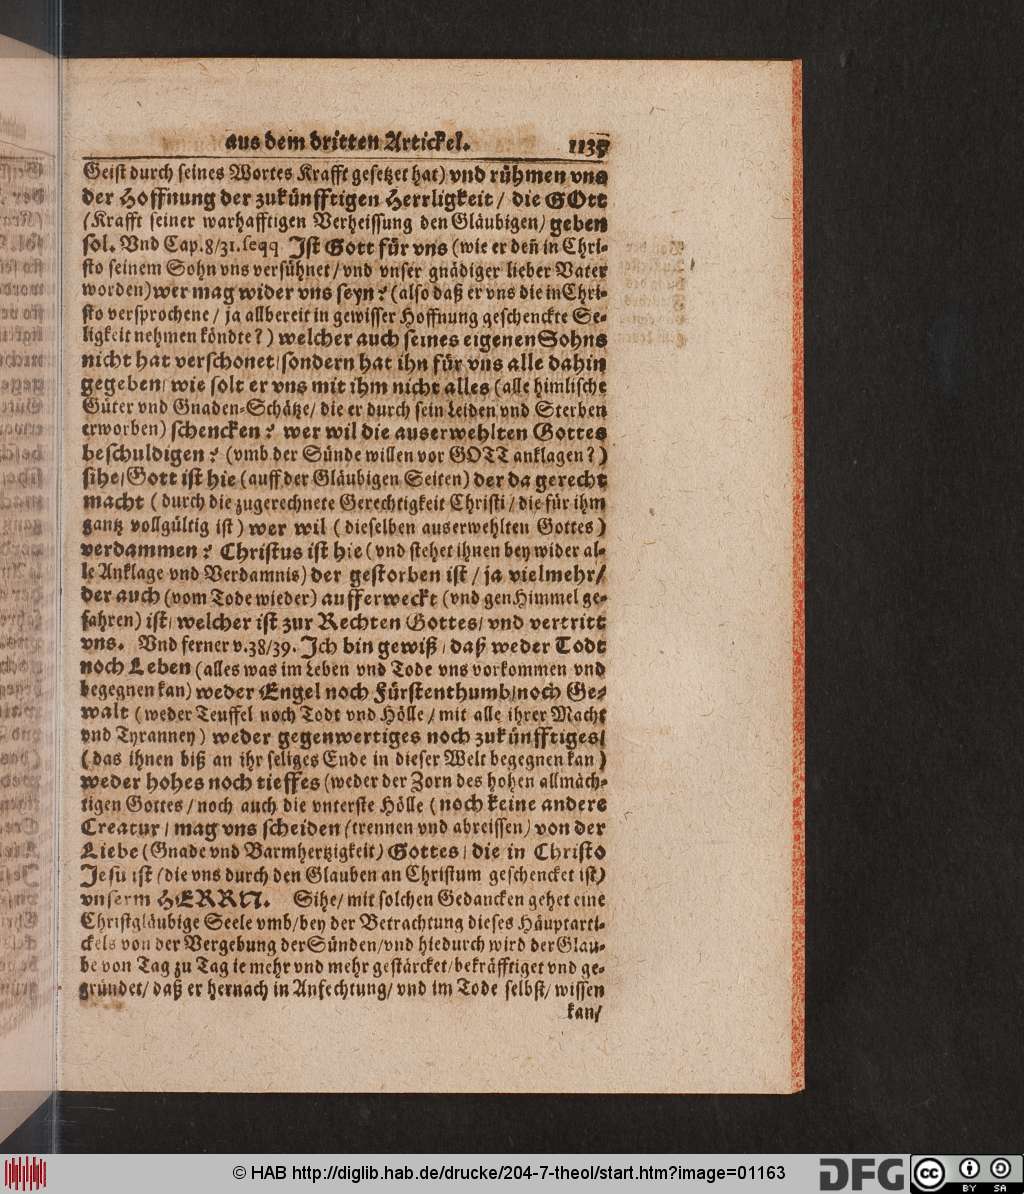 aus dem dritten Artickel. 1135
Geist durch seines Wortes Krafft gesetzet hat) vnd rühmen vns
der Hoffnung der zukünfftigen Herrligkeit / die GOtt
(Krafft seiner warhafftigen Verheissung den Gläubigen/ geben
sol. Vnd Cap. 8/31. seqq Ist Gott für vns (wie er deñ in Chri-
sto seinem Sohn vns versühnet / vnd vnser gnädiger lieber Vater
worden) wer mag wider vns seyn? (also daß er vns die in Chri-
sto versprochene / ja allbereit in gewisser Hoffnung geschenckte Se-
ligkeit nehmen köndte?) welcher auch seines eigenen Sohns
nicht hat verschonet / sondern hat ihn für vns alle dahin
gegeben / wie solt er vns mit ihm nicht alles (alle himlische
Güter vnd Gnaden-Schätze / die er durch sein Leiden vnd Sterben
erworben) schencken? wer wil die auserwehlten Gottes
beschuldigen? (vmb der Sünde willen vor GOTT anklagen?)
sihe / Gott ist hie (auff der Gläubigen Seiten) der da gerecht
macht (durch die zugerechnete Gerechtigkeit Christi / die für ihm
gantz vollgültig ist) wer wil (dieselben auserwehlten Gottes)
verdammen? Christus ist hie (vnd stehet ihnen bey wider al-
le Anklage vnd Verdamnis) der gestorben ist / ja vielmehr /
der auch (vom Tode wieder) aufferweckt (vnd gen Himmel ge-
fahren) ist / welcher ist zur Rechten Gottes / vnd vertritt
vns. Vnd ferner v. 38/39. Ich bin gewiß / daß weder Todt
noch Leben (alles was im Leben vnd Tode vns vorkommen vnd
begegnen kan) weder Engel noch Fürstenthumb / noch Ge-
walt (weder Teuffel noch Todt vnd Hölle / mit alle ihrer Macht
vnd Tyranney) weder gegenwertiges noch zukünfftiges /
(das ihnen biß an ihr seliges Ende in dieser Welt begegnen kan)
weder hohes noch tieffes (weder der Zorn des hohen allmäch-
tigen Gottes / noch auch die vnterste Hölle (noch keine andere
Creatur / mag vns scheiden (trennen vnd abreissen) von der
Liebe (Gnade vnd Barmhertzigkeit) Gottes / die in Christo
Jesu ist (die vns durch den Glauben an Christum geschencket ist)
vnserm HERRN. Sihe / mit solchen Gedancken gehet eine
Christgläubige Seele vmb / bey der Betrachtung dieses Häuptarti-
ckels von der Vergebung der Sünden / vnd hiedurch wird der Glau-
be von Tag zu Tag ie mehr vnd mehr gestärcket / bekräfftiget vnd ge-
gründet / daß er hernach in Anfechtung / vnd im Tode selbst / wissen
kan /
© HAB http://diglib.hab.de/drucke/204-7-theol/start.htm?image=01163 DFG cc BY SA